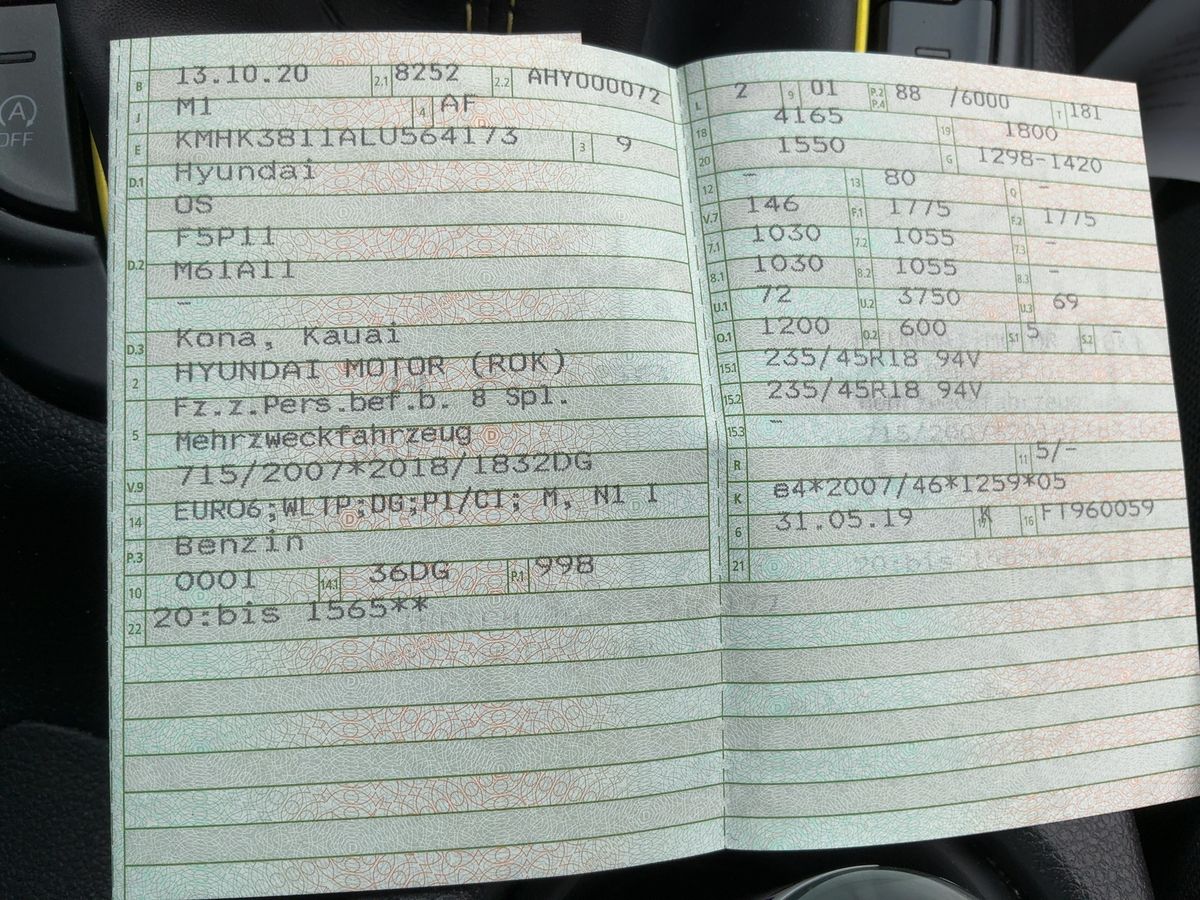 B 13.10.20 2.1 8252 2.2 AHY000072
J M1 4 AF
E KMHK3811ALU564173 3 9
D.1 Hyundai
OS
F5P11
D.2 M61A11
–
D.3 Kona, Kauai
2 HYUNDAI MOTOR (ROK)
Fz.z.Pers.bef.b. 8 Spl.
5 Mehrzweckfahrzeug
715/2007*2018/1832DG
V.9 EURO6;WLTP;DG;PI/CI; M, N1 I
14
P.3 Benzin
10 0001 14.1 36DG P.1 998
22 20:bis 1565**
L 2 9 01 P.2 P.4 88 /6000 T 181
18 4165 19 1800
20 1550 G 1298-1420
12 – 13 80 Q –
V.7 146 F.1 1775 F.2 1775
7.1 1030 7.2 1055 7.3 –
8.1 1030 8.2 1055 8.3 –
U.1 72 U.2 3750 U.3 69
O.1 1200 O.2 600 S.1 5 S.2 –
15.1 235/45R18 94V
15.2 235/45R18 94V
15.3 –
R 11 5/–
K e4*2007/46*1259*05
6 31.05.19 17 K 16 FT960059
21
A
OFF